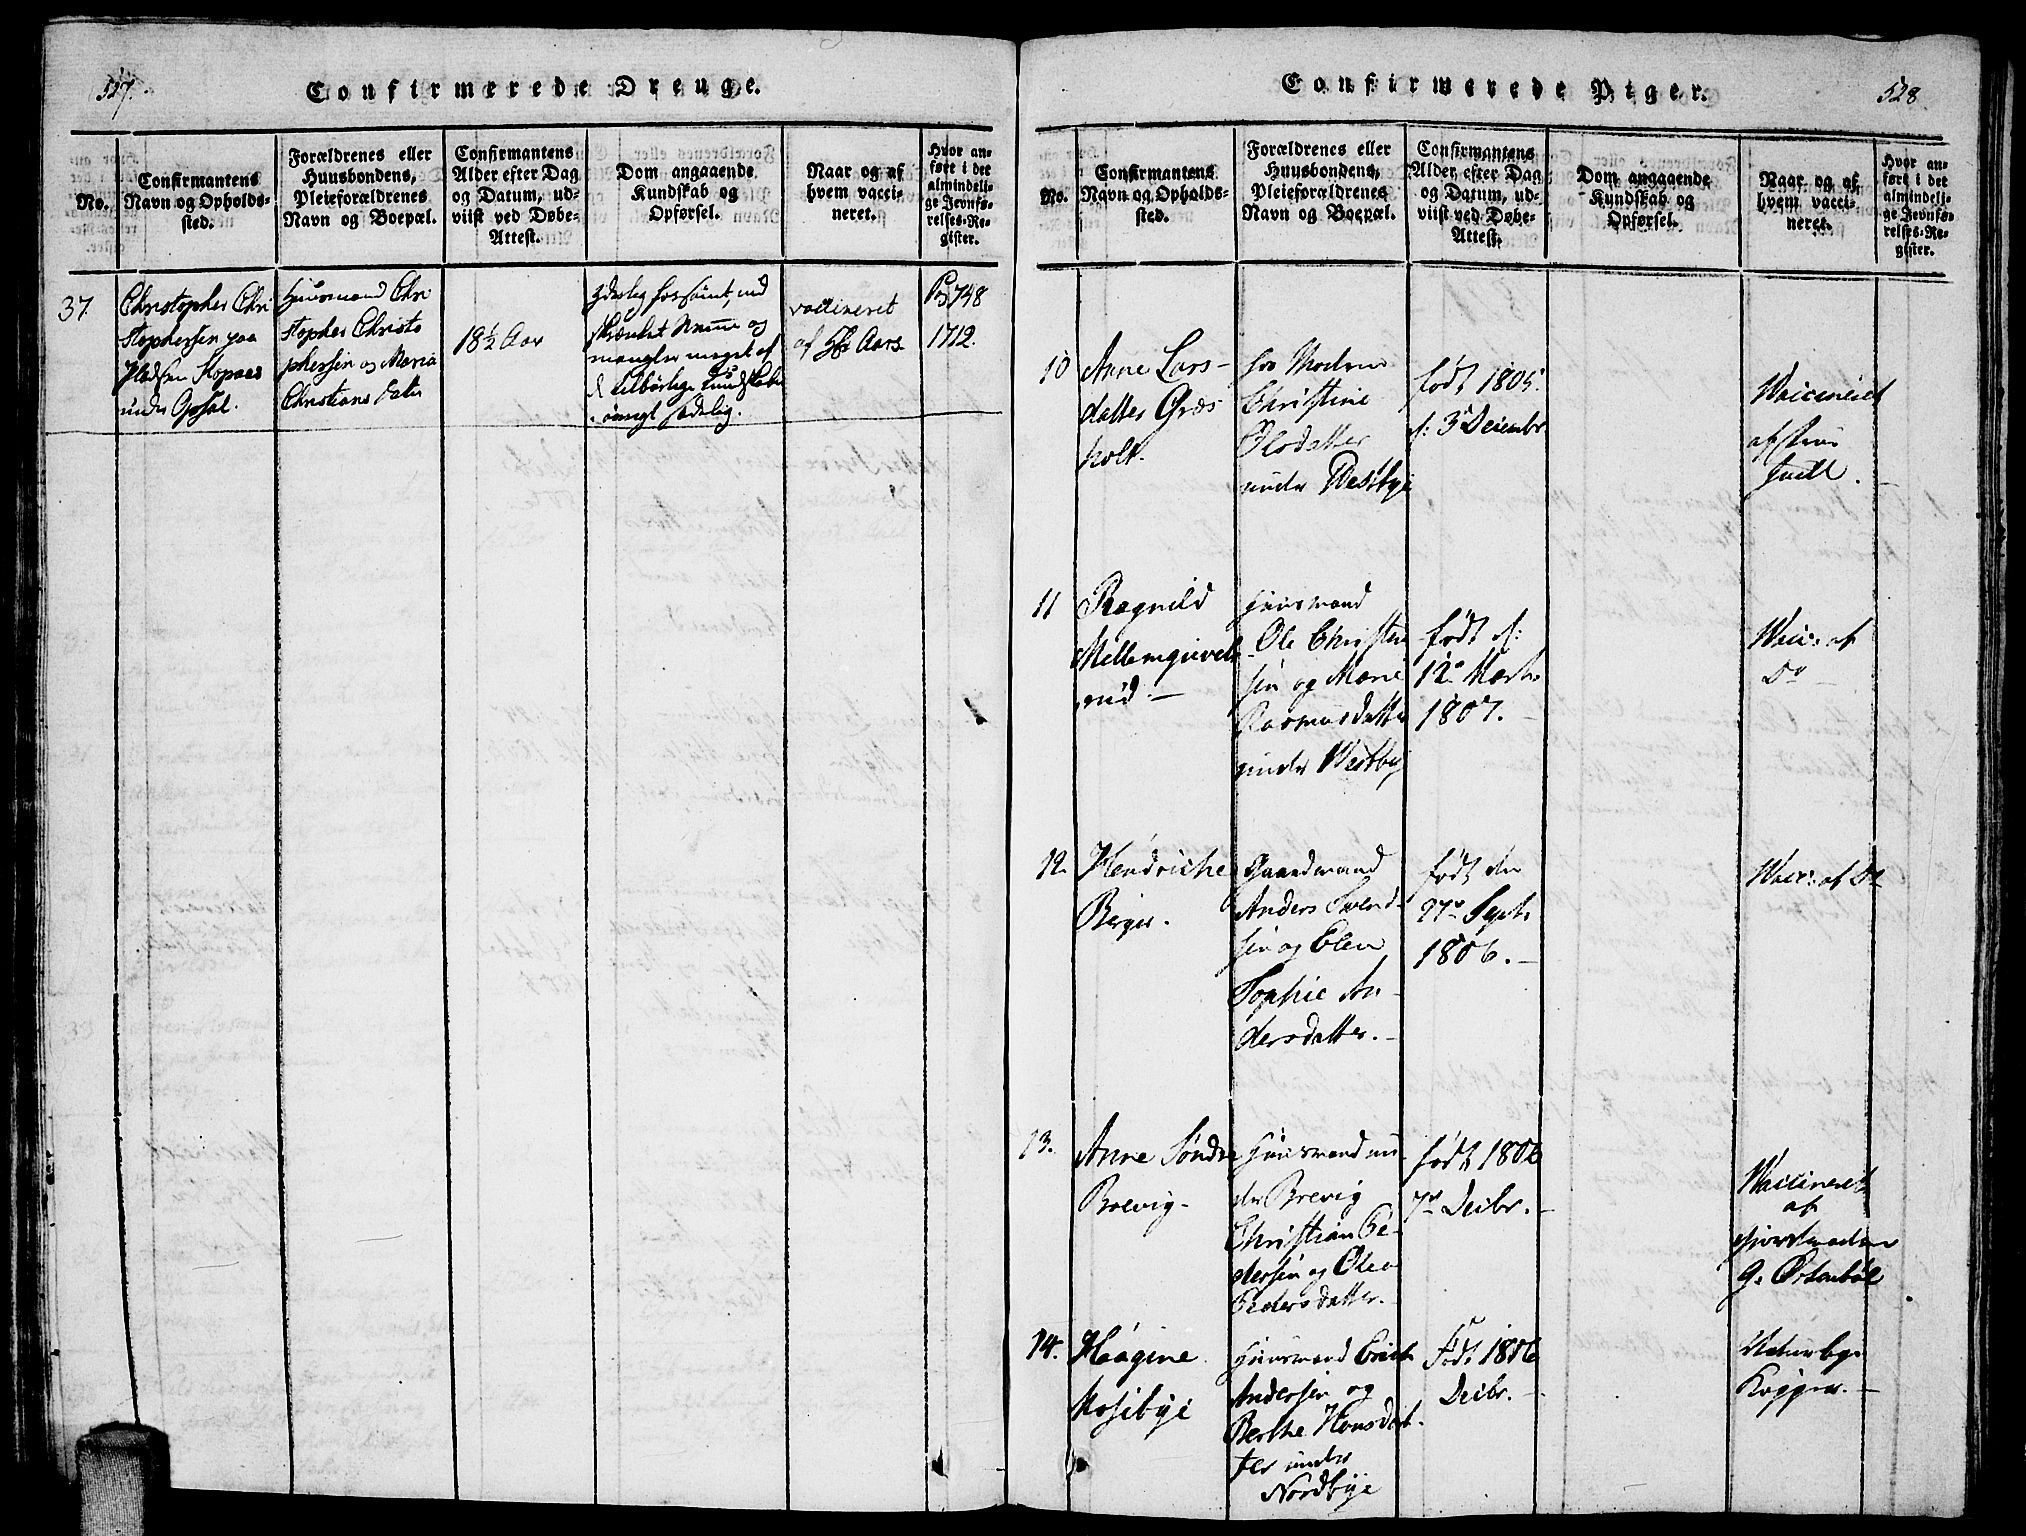 527.
Confirmerede Drenge.
No.
Confirmantens
Navn og Opholds-
sted.
Forældrenes eller
Huusbondens,
Pleieforældrenes
Navn og Boepæl.
Confirmantens
Alder efter Dag
og Datum, ud-
viist ved Døbe-
Attest.
Dom angaaende
Kundskab og
Opførsel.
Naar og af
hvem vacci-
neret.
Hvor an-
ført i det
almindeli-
ge Jevnfø-
relses-Re-
gister.
37.
Christopher Chri
stophersen paa
under Opsal.
Huusmand Chri
stopher Christo
phersen og Maria
Christians datter
18½ Aar
forsømt, ved
og
mangler meget af
d tilbørlige Kundskaber
sædelig.
vaccineret
af Aars
Pag 748
1712.
Confirmerede Piger.
528.
No.
Confirmantens
Navn og Opholds-
sted.
Forældrenes eller
Huusbondens,
Pleieforældrenes
Navn og Boepæl.
Confirmantens
Alder efter Dag
og Datum, ud-
viist ved Døbe-
Attest.
Dom angaaende
Kundskab og
Opførsel.
Naar og af
hvem vacci-
neret.
Hvor an-
ført i det
almindeli-
ge Jevnfø-
relses-Re-
gister.
10
Anne Lars-
datter Græs
holt.
hos Modren
Christine
Olsdatter
under Westbye
født 1805.
d: 3 Decembr.
Vaccineret
af
11
Ragnild
Mellemgrevels
rud.
Huusmand
Ole Christen
sen og Marie
Rasmusdatter
under Westbye
født d:
12te Marts
1807.
Vacc: af
Do
12.
Hendriche
Berger.
Gaardmand
Anders Svend-
sen og Elen
Sophie An-
dersdatter.
født den
27de Septr
1806.
Vacc: af Do
13.
Anne Søndre
Brevig.
Huusmand un-
der Brevig
Christian Pe-
dersen og Olea
Pedersdatter.
født 1806
7de Decbr.
Vaccineret
af
Jordmoder
G. Østenbøl
14.
Haagine
Mosebye
Huusmand Erich
Andersen og
Berthe Hansdat-
ter under
Nordbye
Født 1806
Decbr.
Naturlige
Kopper.